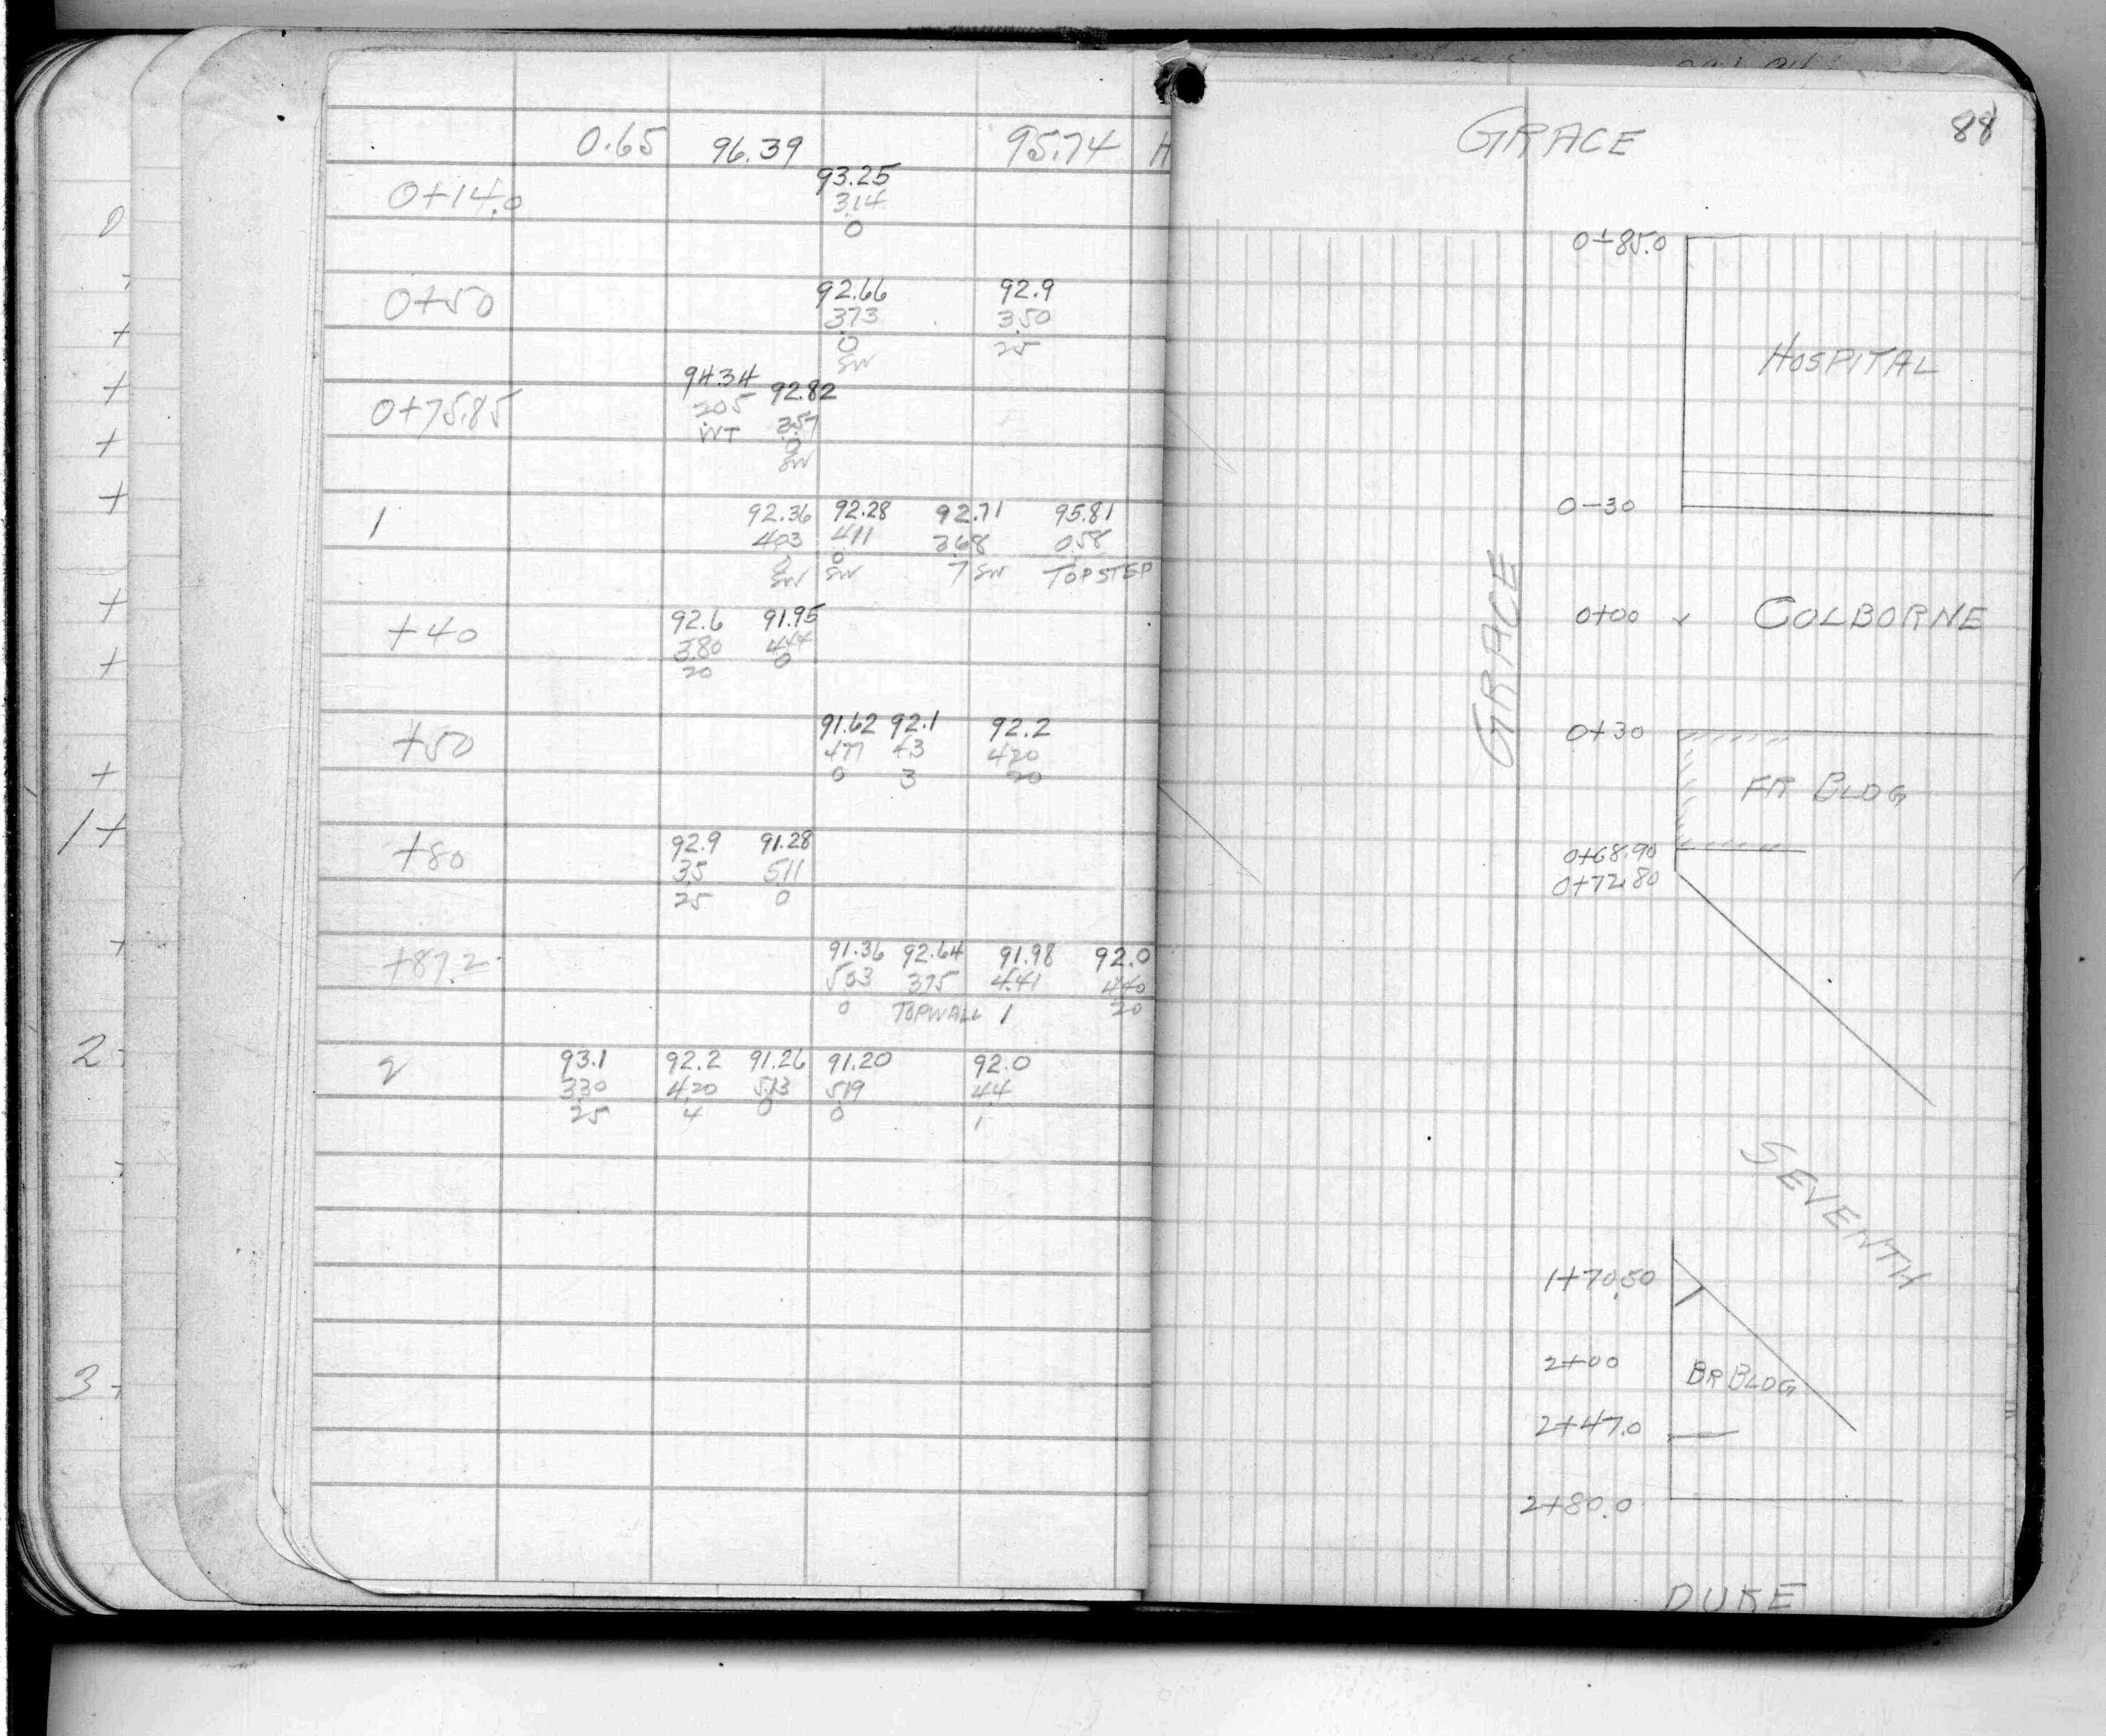 0.65 96.39 95.74 H
93.25
0+14.0 3.14
0
92.66 92.9
0+50 3.73 3.50
0 25
SW
94.34 92.82
0+75.85 2.05 3.57
WT 0
SW
92.36 92.28 92.71 95.81
1 4.03 4.11 3.68 0.58
0 0
SW SW 7 SW TOP STEP
92.6 91.95
+40 3.80 4.44
20 0
91.62 92.1 92.2
+50 4.77 4.3 4.20
0 3 20
92.9 91.28
+80 3.5 5.11
25 0
91.36 92.64 91.98 92.0
+87.2 5.03 3.75 4.41 4.40
0 TOPWALL 1 20
93.1 92.2 91.26 91.20 92.0
2 3.30 4.20 5.13 5.19 4.4
25 4 0 0 1
+
+
+
+
+
+
+
+
1+
+
2
3
88
GRACE
0+85.0
HOSPITAL
0-30
GRACE
0+00 COLBORNE
0+30
FR BLDG
0+68.90
0+72.80
SEVENTH
1+70.50
2+00
BR BLDG
2+47.0
2+80.0
DUKE